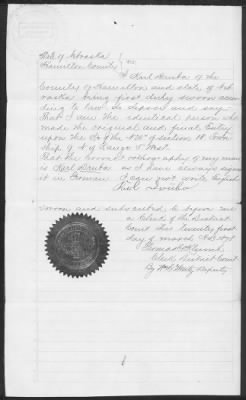 State of Nebraska
Hamilton County } ss.
I Karl Druba of the
County of Hamilton and state of Neb
raska being first duly sworn accor
ding to law do depose and say
That I am the identical person who
made the original and final Entry
upon the of the of section 18 Town
ship 9 N of Range 5 West.
That the correct orthography of my name
is Karl Druba as I have always signed
it in German I can not write English
Karl Druba
sworn and subscribed to before me
a Clerk of the District
Court this twenty first
day of march A.D. 187
Thomas
Clerk District Court
By Deputy